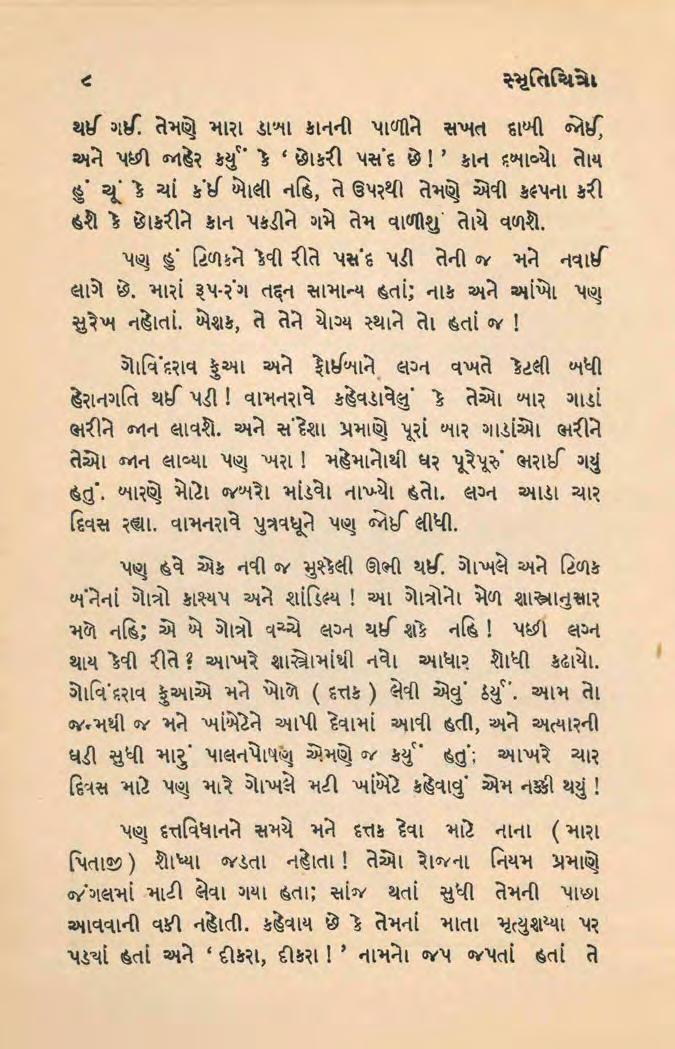 ૮ સ્મૃતિચિત્રો
થઈ ગઈ. તેમણે મારા ડાબા કાનની પાળીને સખત દાબી જોઈ,
અને પછી જાહેર કર્યું કે ‘ છોકરી પસંદ છે ! ’ કાન દબાવ્યો તોય
હું ચૂં કે ચાં કંઈ બોલી નહિ, તે ઉપરથી તેમણે એવી કલ્પના કરી
હશે કે છોકરીને કાન પકડીને ગમે તેમ વાળીશું તોયે વળશે.
પણ હું ટિળકને કેવી રીતે પસંદ પડી તેની જ મને નવાઈ
લાગે છે. મારાં રૂપ-રંગ તદ્દન સામાન્ય હતાં; નાક અને આંખો પણ
સુરેખ નહોતાં. બેશક, તે તેને યોગ્ય સ્થાને તો હતાં જ !
ગોવિંદરાવ ફુઆ અને ફોઈબાને લગ્ન વખતે કેટલી બધી
હેરાનગતિ થઈ પડી ! વામનરાવે કહેવડાવેલું કે તેઓ બાર ગાડાં
ભરીને જાન લાવશે. અને સંદેશા પ્રમાણે પૂરાં બાર ગાડાંઓ ભરીને
તેઓ જાન લાવ્યા પણ ખરા ! મહેમાનોથી ઘર પૂરેપૂરું ભરાઈ ગયું
હતું. બારણે મોટો જબરો માંડવો નાખ્યો હતો. લગ્ન આડા ચાર
દિવસ રહ્યા. વામનરાવે પુત્રવધૂને પણ જોઈ લીધી.
પણ હવે એક નવી જ મુશ્કેલી ઊભી થઈ. ગોખલે અને ટિળક
બંનેનાં ગોત્રો કાશ્યપ અને શાંડિલ્ય ! આ ગોત્રોનો મેળ શાસ્ત્રાનુસાર
મળે નહિ; એ બે ગોત્રો વચ્ચે લગ્ન થઈ શકે નહિ ! પછી લગ્ન
થાય કેવી રીતે ? આખરે શાસ્ત્રોમાંથી નવો આધાર શોધી કઢાયો.
ગોવિંદરાવ ફુઆએ મને ખોળે ( દત્તક ) લેવી એવું ઠર્યું. આમ તો
જન્મથી જ મને ખાંબેટેને આપી દેવામાં આવી હતી, અને અત્યારની
ઘડી સુધી મારું પાલનપોષણ એમણે જ કર્યું હતું; આખરે ચાર
દિવસ માટે પણ મારે ગોખલે મટી ખાંબેટે કહેવાવું એમ નક્કી થયું !
પણ દત્તવિધાનને સમયે મને દત્તક દેવા માટે નાના ( મારા
પિતાજી ) શોધ્યા જડતા નહોતા ! તેઓ રોજના નિયમ પ્રમાણે
જંગલમાં માટી લેવા ગયા હતા; સાંજ થતાં સુધી તેમની પાછા
આવવાની વકી નહોતી. કહેવાય છે કે તેમનાં માતા મૃત્યુશય્યા પર
પડ્યાં હતાં અને ‘ દીકરા, દીકરા ! ’ નામનો જપ જપતાં હતાં તે